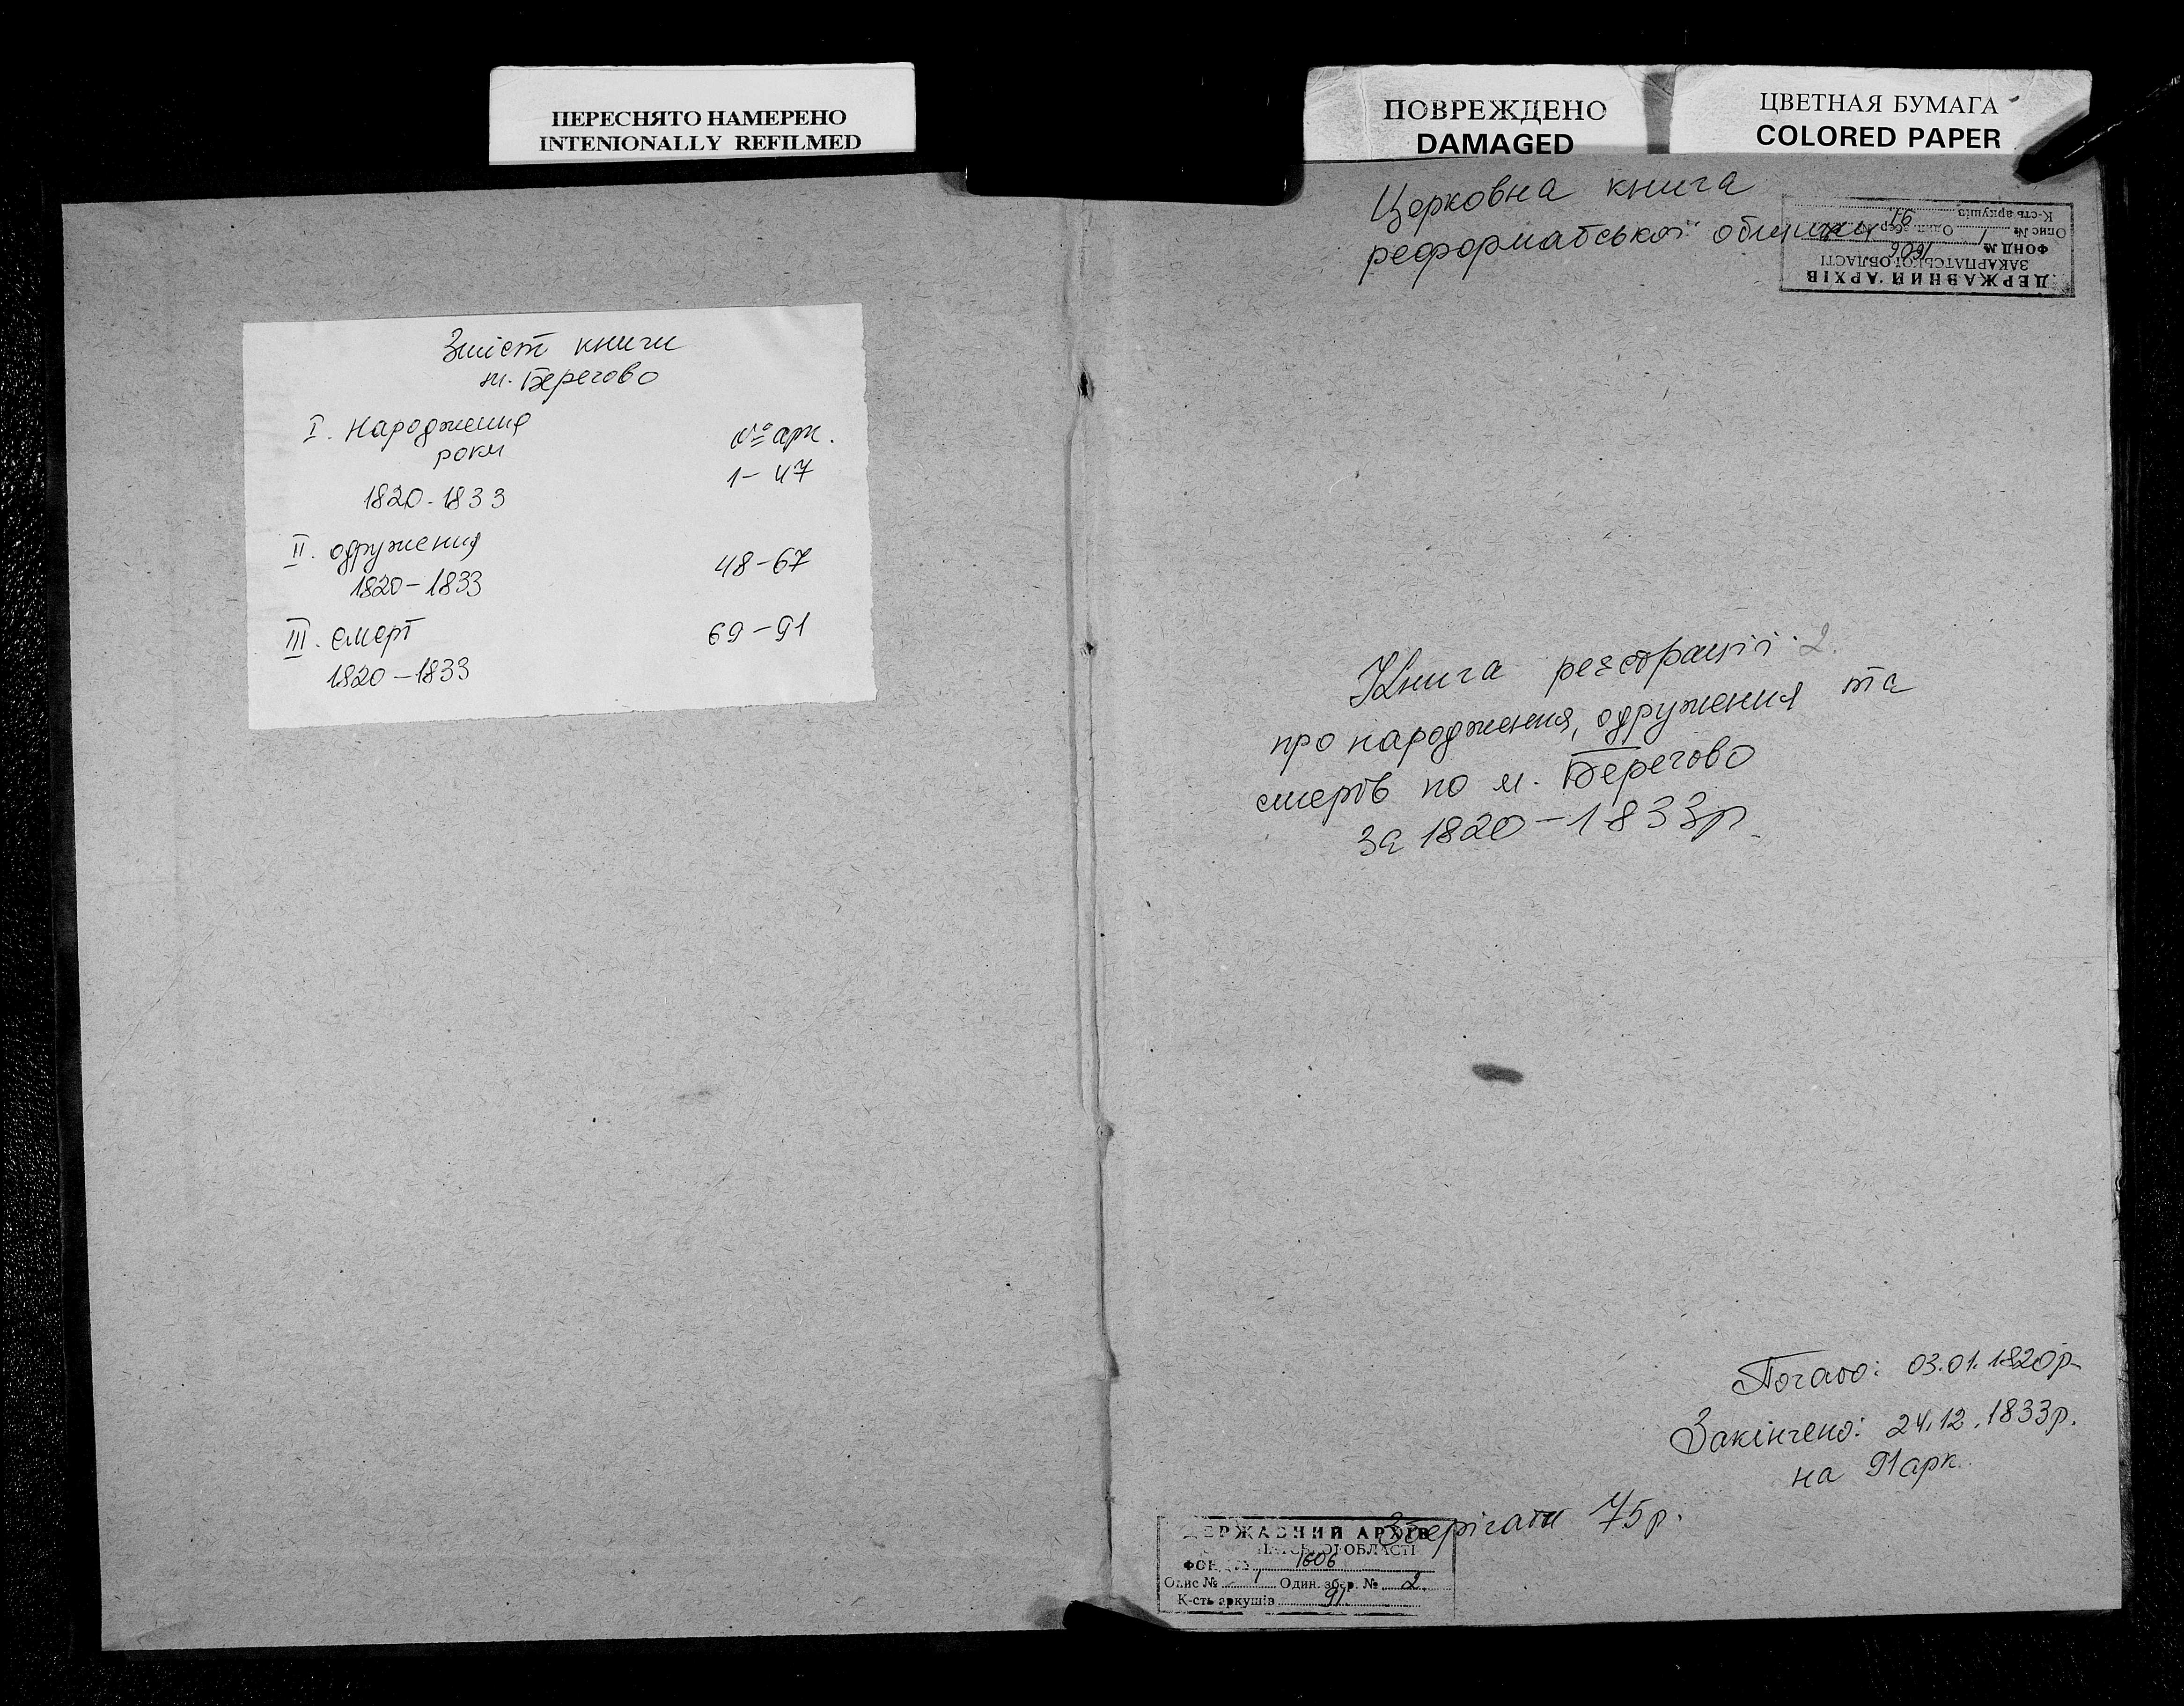 ПЕРЕСНЯТО НАМЕРЕНО
INTENIONALLY REFILMED
ПОВРЕЖДЕНО
DAMAGED
ЦВЕТНАЯ БУМАГА
COLORED PAPER
Зміст книги
м. Берегово
I. Народження
роки
№ арк.
1820-1833
1-47
II. одружения
1820-1833
48-67
III. смерт
1820-1833
69-91
Церковна книга
реформатської общини
ДЕРЖАВНИЙ АРХІВ
ЗАКАРПАТСЬКОЇ ОБЛАСТІ
ФОНД № 1606
Опис № 1 Один. збер. №
К-сть аркушів 91
Книга реєстрації 2.
про народження, одружения та
смерть по м. Берегово
за 1820-1833р.
Почато: 03.01.1820р
Закінчено: 24.12.1833р.
на 91арк.
Зберігати 75р.
ДЕРЖАВНИЙ АРХІВ
ОБЛАСТІ
ФОНД 1606
Опис № 1 Один. збер. № 2.
К-сть аркушів 91